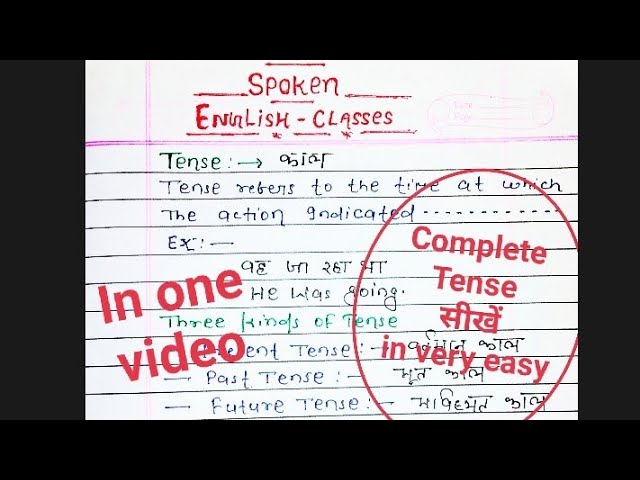 Spoken
English - Classes
Tense :→ काल
Tense refers to the time at which
The action Indicated ------------
Ex :—
वह जा रहा था
He was going.
Three kinds of Tense
Present Tense :- वर्तमान काल
— Past Tense :- भूत काल
— Future Tense :- भविष्यत काल
In one
video
Complete
Tense
सीखें
in very easy